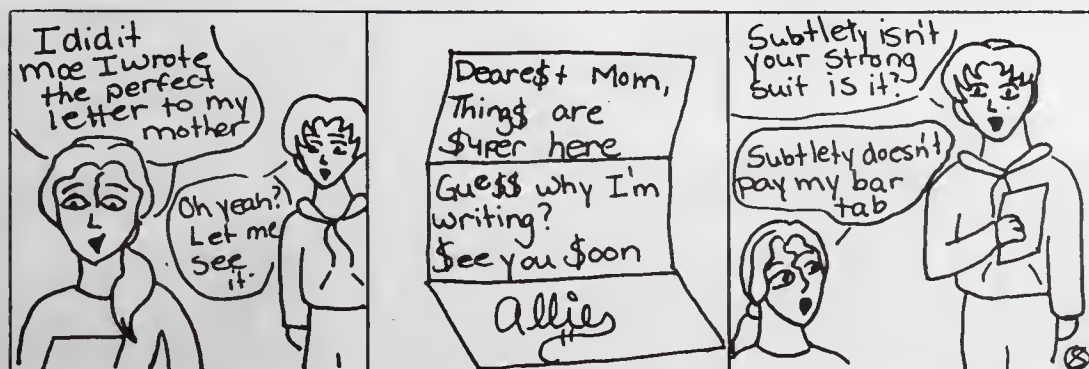 I did it
moe I wrote
the perfect
letter to my
mother
Oh yeah?
Let me
see
it.
Deare$t Mom,
Thing$ are
$uper here
Gue$$ why I'm
writing?
$ee you $oon
Allie
Subtlety isn't
your strong
suit is it?
Subtlety doesn't
pay my bar
tab